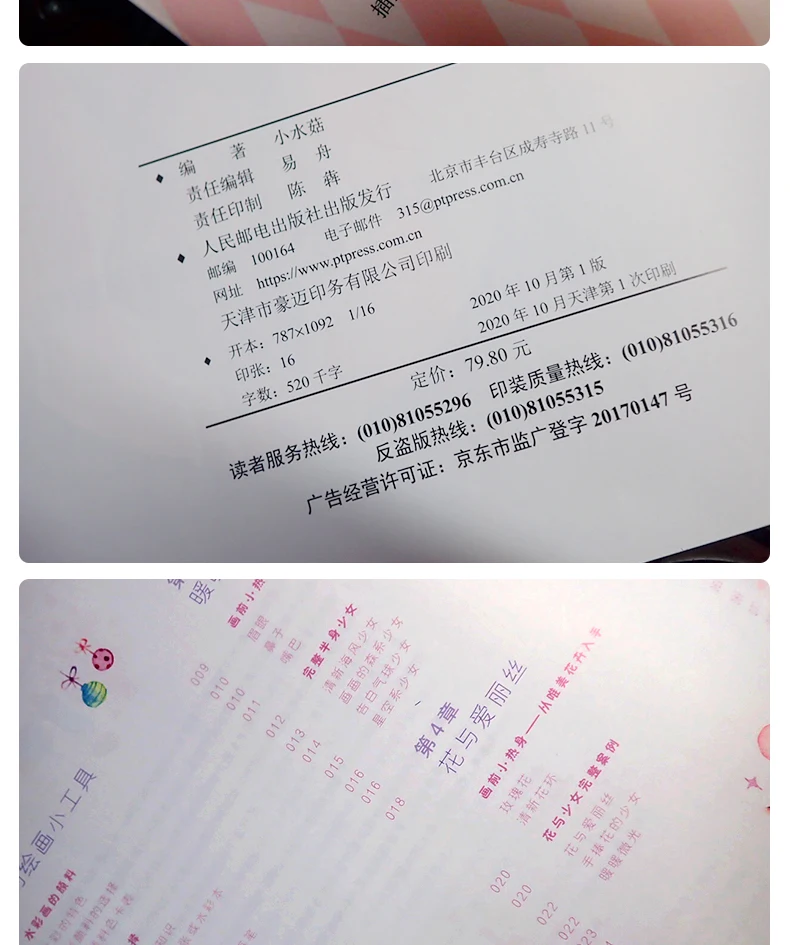 插
编 著 小水菇
责任编辑 易 舟
责任印制 陈 犇
人民邮电出版社出版发行 北京市丰台区成寿寺路 11 号
邮编 100164 电子邮件 315@ptpress.com.cn
网址 https://www.ptpress.com.cn
天津市豪迈印务有限公司印刷
开本：787×1092 1/16 2020 年 10 月第 1 版
印张：16 2020 年 10 月天津第 1 次印刷
字数：520 千字
定价：79.80 元
读者服务热线：(010)81055296 印装质量热线：(010)81055316
反盗版热线：(010)81055315
广告经营许可证：京东市监广登字 20170147 号
绘画小工具
水彩画的颜料
彩的特色
颜料的选择
009
010
010
011
012
013
014
015
016
016
018
暖
画前小热
眉眼
鼻子
嘴巴
完整半身少女
清新海风少女
甜甜的森系少女
告白气球少女
星空系少女
020
020
022
022
第4章
花与爱丽丝
画前小热身——从唯美花卉入手
玫瑰花
清新花环
花与少女完整案例
花与爱丽丝
手捧花的少女
暖暖微光